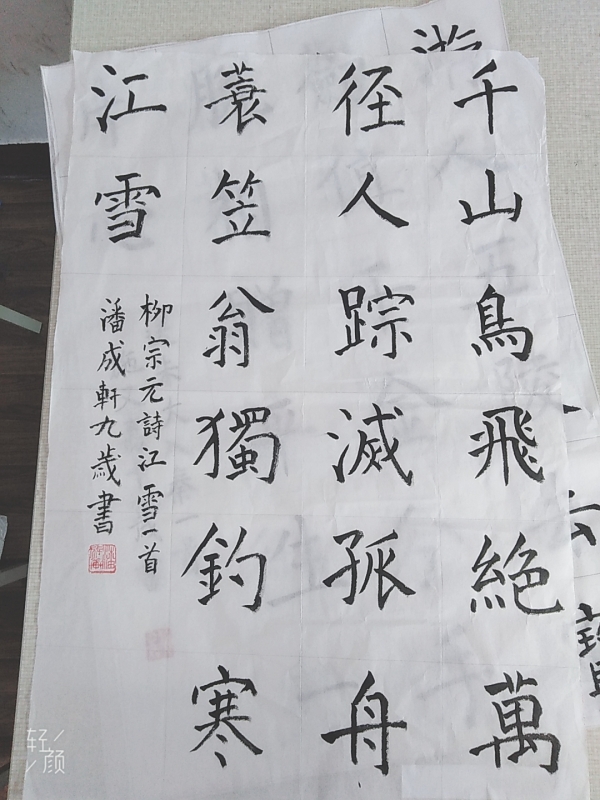 千山鳥飛絶萬
径人踪滅孤舟
蓑笠翁獨釣寒
江雪
柳宗元詩江雪一首
潘成軒九歲書
轻颜